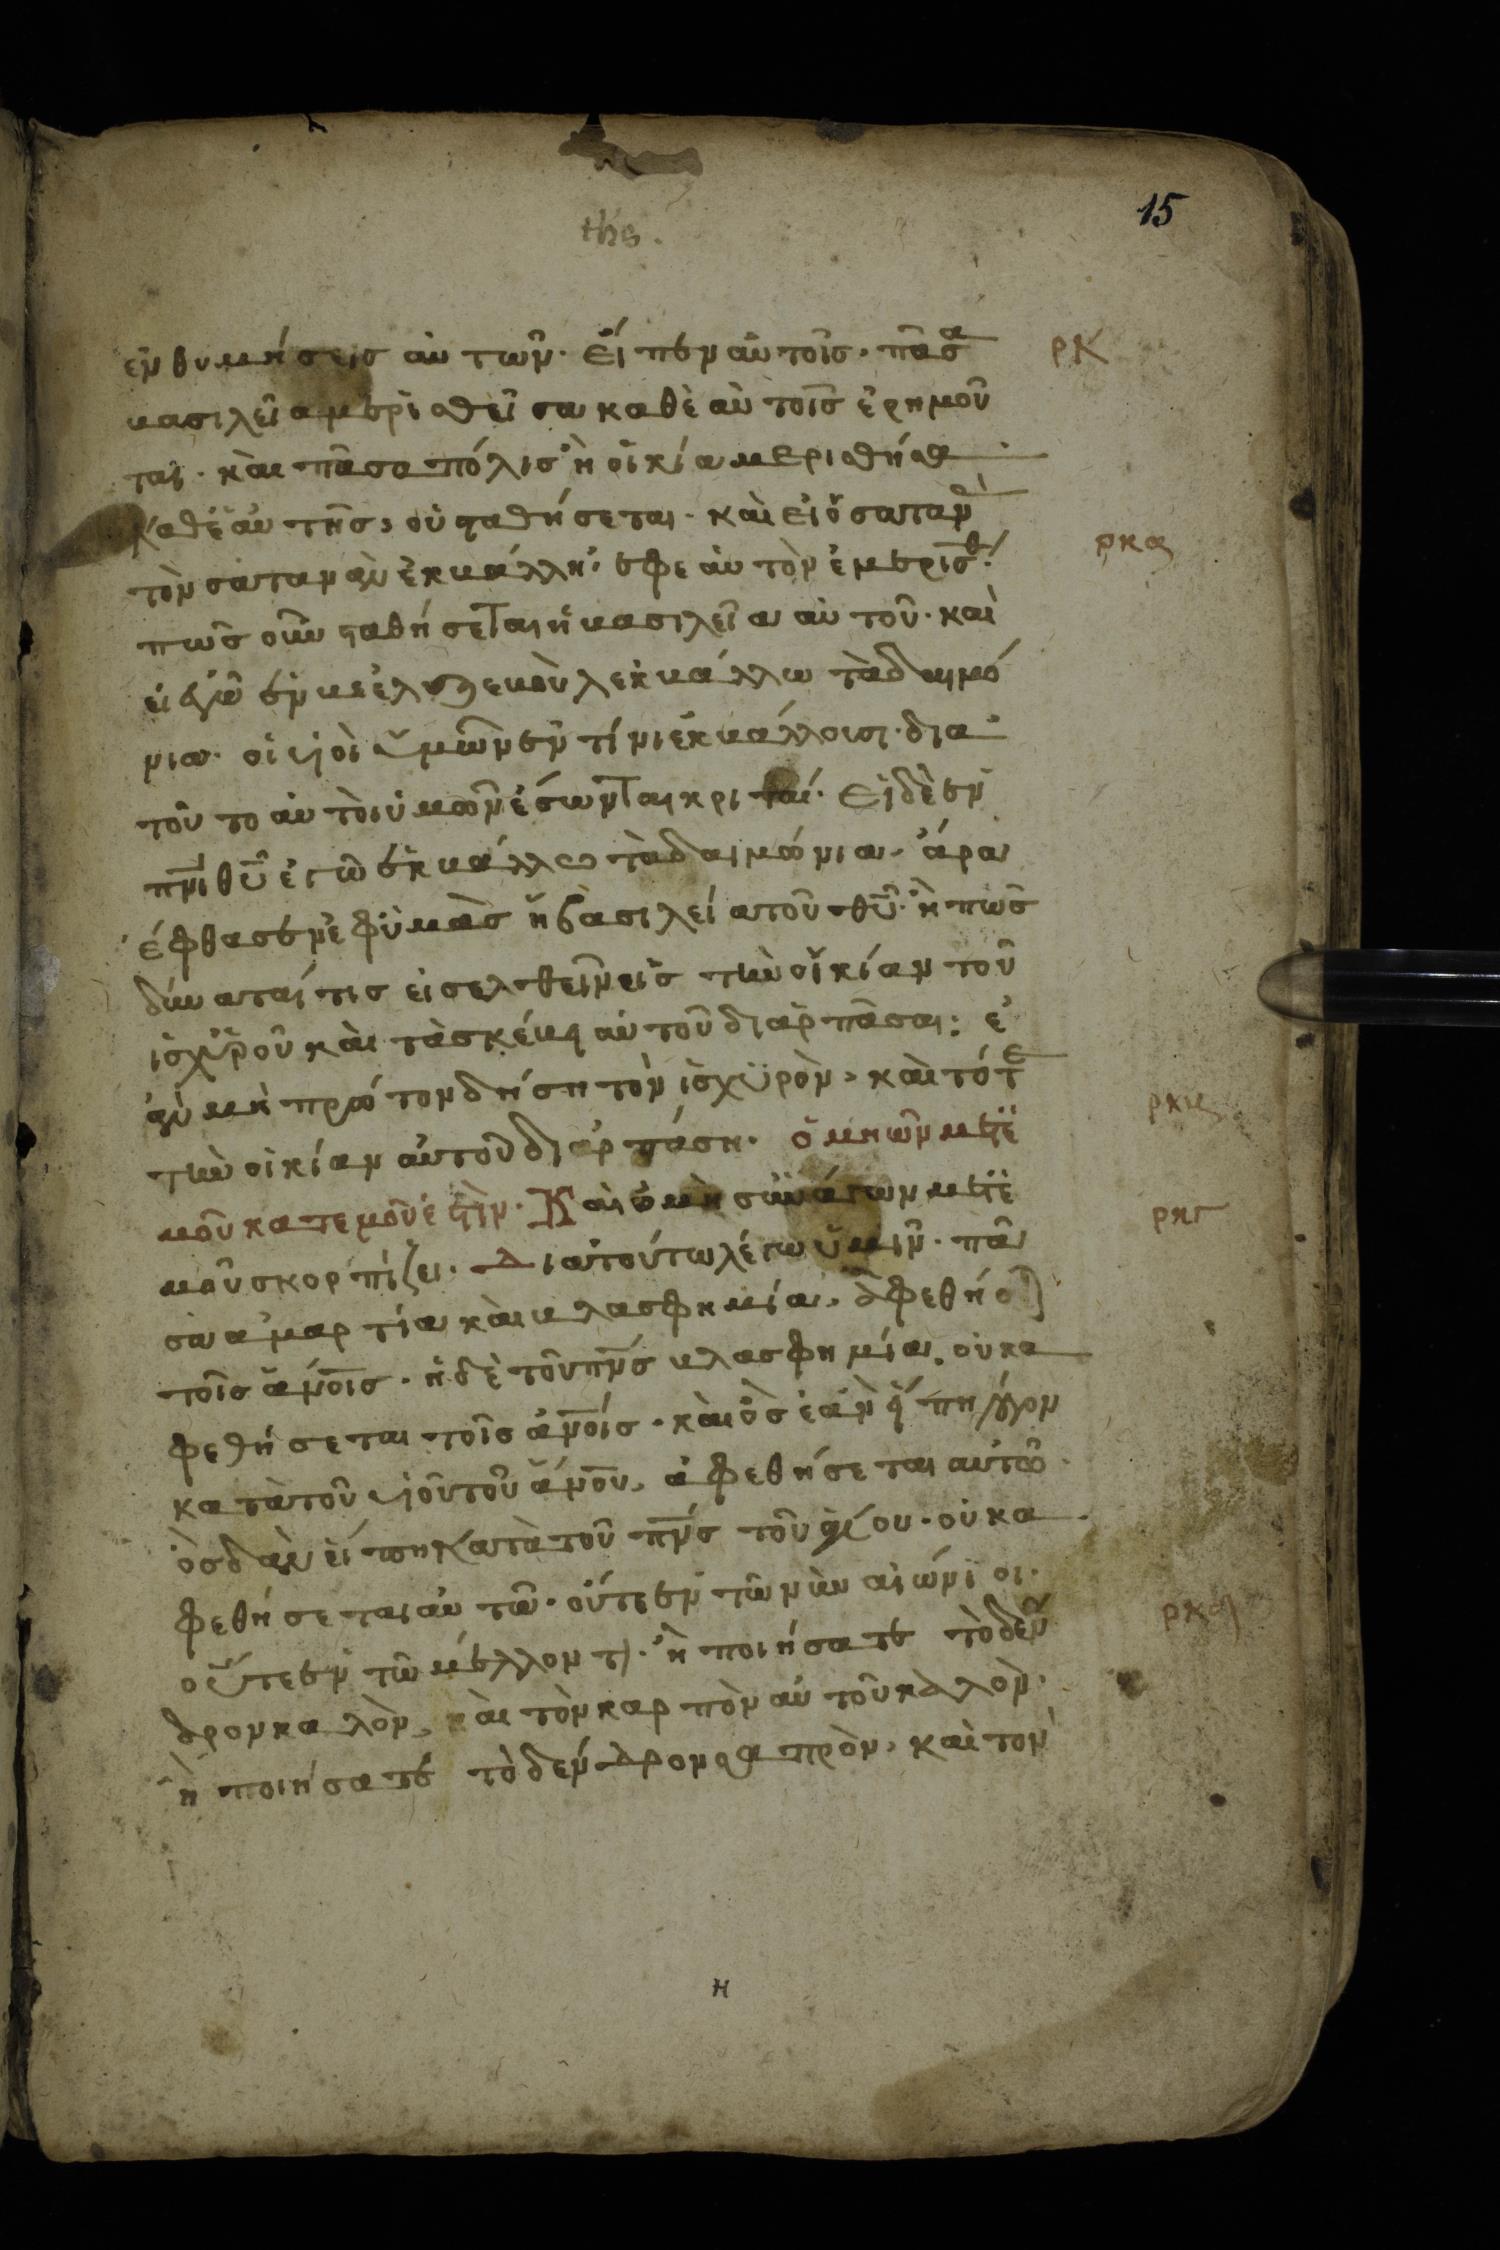 15
ths.
ἐνθυμήσεις αὐτῶν· εἶπεν αὐτοῖς· πᾶσα ρκ
βασιλεῖα μερισθεῖσα καθὲαὐτοῖς ἐρημοῦ
ται· καὶ πᾶσα πόλις ἢ οἰκία μερισθῆσα
καθἑαὐτῆς, οὐ σταθήσεται· καὶ εἰ ὁ σατανὰ
τὸν σαταναν ἐκβάλλη, ἐφε αὐτὸν ἐμερίσθ· ρκα
πῶς οὖν σταθήσεται ἡ βασιλεῖα αὐτοῦ· καὶ
εἰ ἐγῶ ἐν βεελζεβοὺλ ἐκβάλλω τὰ δαιμό
νια· οἱ υἱοὶ ὑμῶν ἐν τίνι ἐκβάλλουσι· δια
τοῦτο αὐτοὶ ὑμῶν ἔσωνται κριταί· εἰ δὲ ἐν
πνι θυ ἐγῶ ἐκβάλλω τὰ δαιμόνια· ἄρα
ἔφθασεν ἐφ ὑμὰς ἡ βασιλεία τοῦ θυ· ἢ πῶς
δύναταί τις εἰσελθεῖν εἰς τὴν οἰκίαν τοῦ
ἰσχυροῦ καὶ τὰ σκέυη αὐτοῦ διαρπᾶσαι; ἐ
ὰν μὴ πρώτον δήση τὸν ἰσχυρὸν, καὶ τότε
τὴν οἰκίαν αὐτοῦ διαρπάση· ὁ μη ὢν μετἐ ρκβ
μοῦ κατεμοῦ ἐστὶν· Καὶ ὁ μὴ συνάγων μετἐ ρκγ
μοῦ σκορπίζει· Διατούτω λέγω ὑμιν· πᾶ
σα αμαρτία καὶ βλασφημία, ἀφεθήσ
τοῖς ἀνοις· ἡ δὲ τοῦ πνς βλασφημία, οὐκ α
φεθήσεται τοῖς ἀνοις· καὶ ὃς ἐὰν εἴπη λόγον
κατὰ τοῦ υἱοῦ τοῦ ἀνου, ἀφεθήσεται αυτῶ·
ὃς δ ὰν εἴπη κατὰ τοῦ πνς τοῦ ἁγίου· οὐκ α
φεθήσεται αὐτῶ· οὔτε ἐν τῶ νῦν αἰώνι οι·
οὔτε ἐν τῶ μέλλοντι· ἢ ποιήσατε τὸ δεν ρκδ
δρον καλὸν, καὶ τὸν καρπὸν αὐτοῦ καλὸν·
ἢ ποιήσατε τὸ δένδρον σαπρὸν, καὶ τον
η